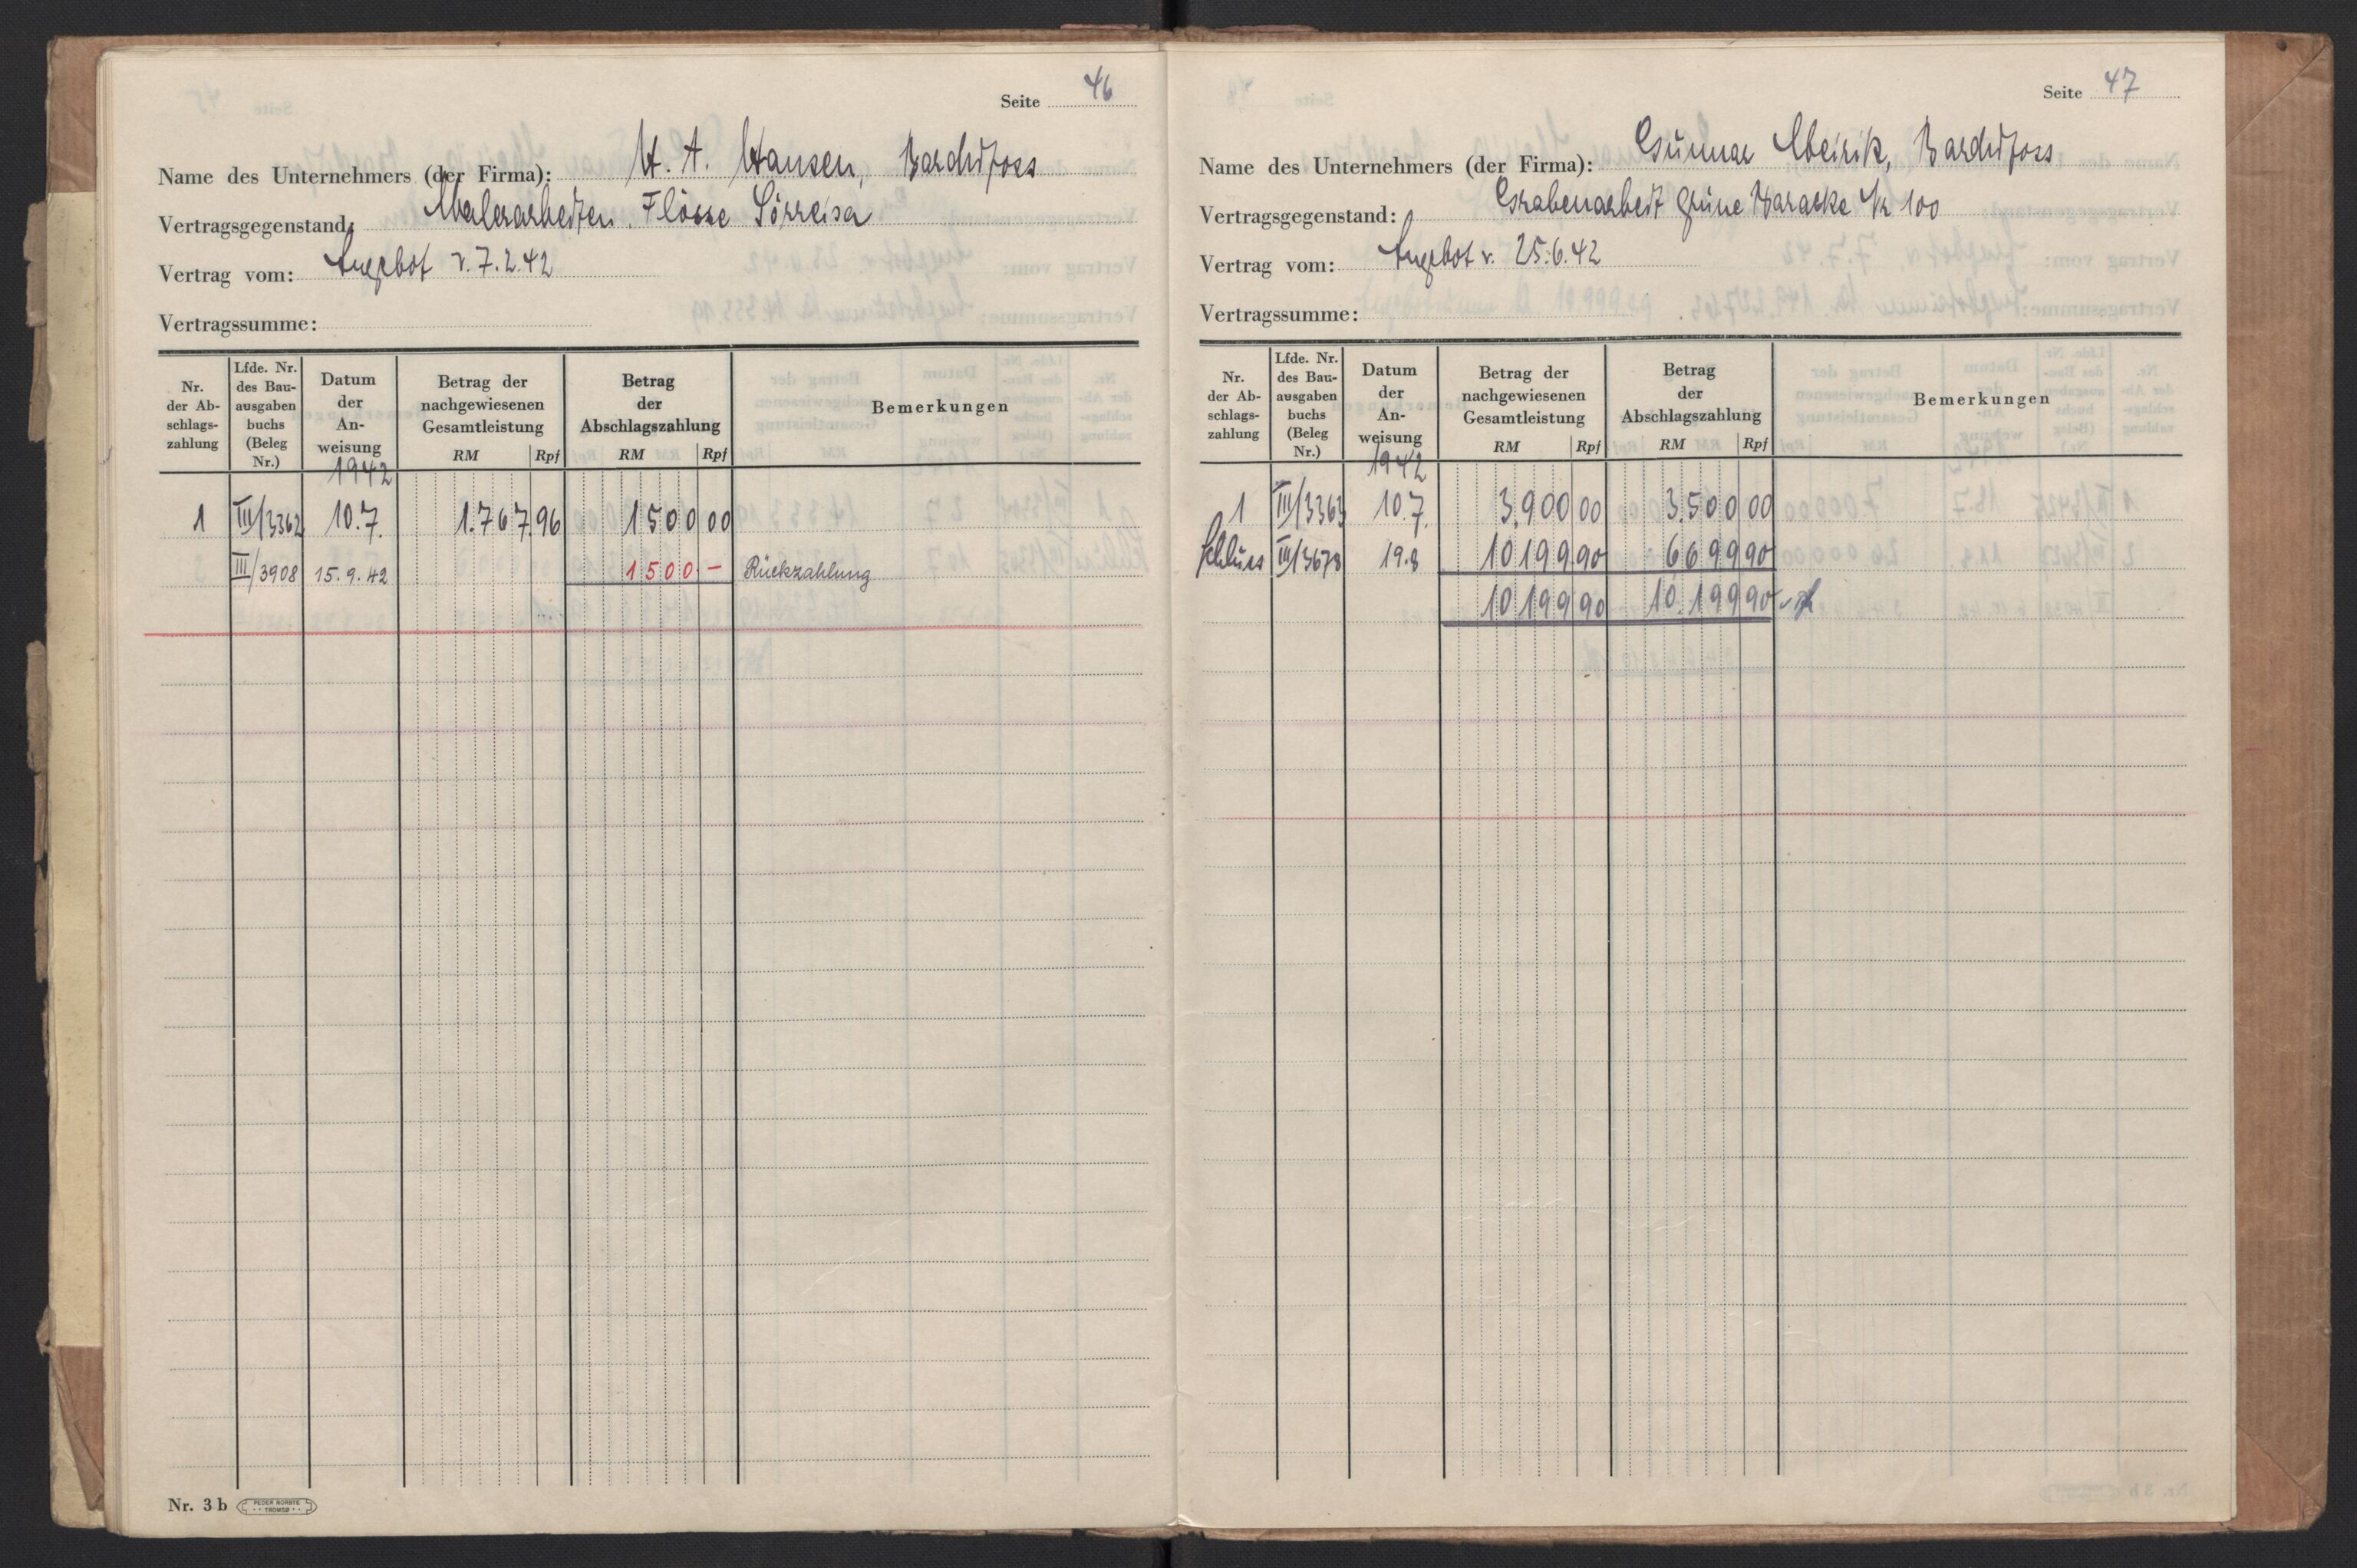 Seite 46
Name des Unternehmers (der Firma): H. A. Hansen, Bardufoss
Vertragsgegenstand: Malerarbeiten Flösse Sörreisa
Vertrag vom: Angebot v. 7.2.42
Vertragssumme:
Nr. der Ab-schlags-zahlung | Lfde. Nr. des Bau-ausgaben buchs (Beleg Nr.) | Datum der An-weisung | Betrag der nachgewiesenen Gesamtleistung RM Rpf | Betrag der Abschlagszahlung RM Rpf | Bemerkungen
1942
1 III/3362 10.7. 1.767.96 1500 00
III/3908 15.9.42 1500 – Rückzahlung
Nr. 3 b PEDER NORBYE TROMSØ
Seite 47
Name des Unternehmers (der Firma): Gunnar Meirik, Bardufoss
Vertragsgegenstand: Grabenarbeit Grüne Baracke Nr 100
Vertrag vom: Angebot v. 25.6.42
Vertragssumme:
Nr. der Ab-schlags-zahlung | Lfde. Nr. des Bau-ausgaben buchs (Beleg Nr.) | Datum der An-weisung | Betrag der nachgewiesenen Gesamtleistung RM Rpf | Betrag der Abschlagszahlung RM Rpf | Bemerkungen
1942
1 III/3363 10.7. 3.900 00 3.500 00
Schluss III/3678 19.8 10199 90 6699 90
10199 90 10.199 90